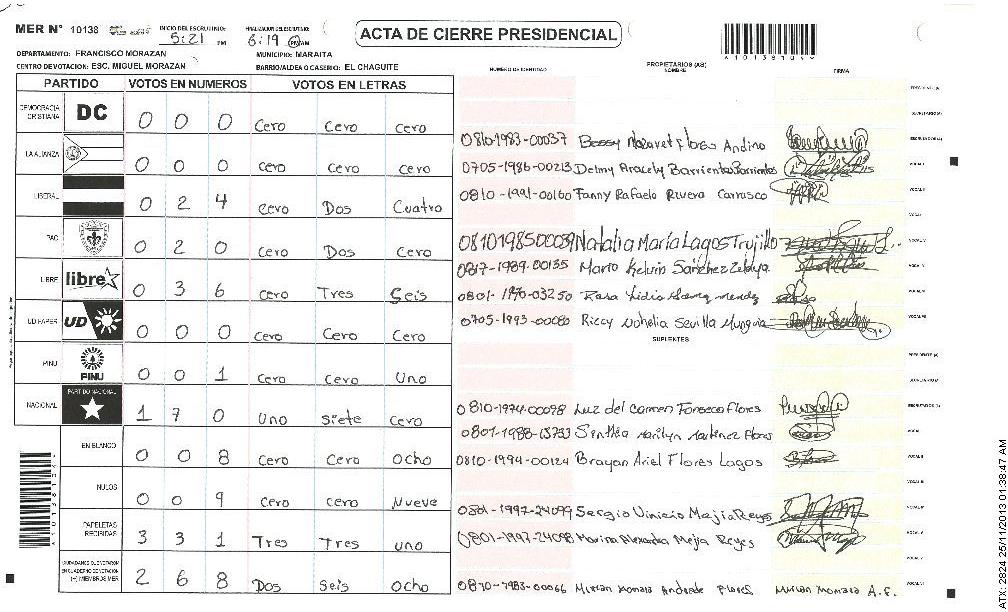 MER N° 10138 INICIO DEL ESCRUTINIO: 5:21 PM FINALIZACION DEL ESCRUTINIO: 6:19 PM AM
ACTA DE CIERRE PRESIDENCIAL
A10138104
DEPARTAMENTO: FRANCISCO MORAZAN MUNICIPIO: MARAITA
CENTRO DE VOTACION: ESC. MIGUEL MORAZAN BARRIO/ALDEA O CASERIO: EL CHAGUITE
PARTIDO VOTOS EN NUMEROS VOTOS EN LETRAS
DEMOCRACIA CRISTIANA DC 0 0 0 Cero Cero Cero
LA ALIANZA 0 0 0 Cero Cero Cero
LIBERAL 0 2 4 Cero Dos Cuatro
PAC 0 2 0 Cero Dos Cero
LIBRE libre 0 3 6 Cero Tres Seis
UD FAPER UD 0 0 0 Cero Cero Cero
PINU PINU 0 0 1 Cero Cero Uno
NACIONAL PARTIDO NACIONAL 1 7 0 Uno Siete Cero
EN BLANCO 0 0 8 Cero Cero Ocho
NULOS 0 0 9 Cero Cero Nueve
PAPELETAS RECIBIDAS 3 3 1 Tres Tres Uno
CIUDADANOS QUE VOTARON EN CUADERNO DE VOTACION (+) MIEMBROS MER 2 6 8 Dos Seis Ocho
PROPIETARIOS (AS)
NUMERO DE IDENTIDAD NOMBRE FIRMA
PRESIDENTE (A)
SECRETARIO (A)
0810-1993-00037 Bessy Nazaret Flores Andino
0705-1986-00213 Delmy Aracely Barrientos Barrientos
0810-1991-00160 Fanny Rafaela Rivera Carrasco
0810198500039 Natalia María Lagos Trujillo
0817-1989-00135 Mario Kelvin Sanchez Zelaya
0801-1970-03250 Rosa Lidia
0705-1993-00080 Riccy Nohelia Sevilla Munguia
SUPLENTES
PRESIDENTE (A)
SECRETARIO (A)
0810-1974-00098 Luz del Carmen Fonseca Flores
0801-1988-13733 Sinthia Marilyn Martinez Flores
0810-1994-00124 Brayan Ariel Flores Lagos
0801-1997-24099 Sergio Vinicio Mejia Reyes
0801-1997-24098 Marina Alexandra Mejia Reyes
0810-1983-00066 Mirian Xomara Andrade Flores Mirian Xomara A.F.
ATX-2824 25/11/2013 01:38:47 AM